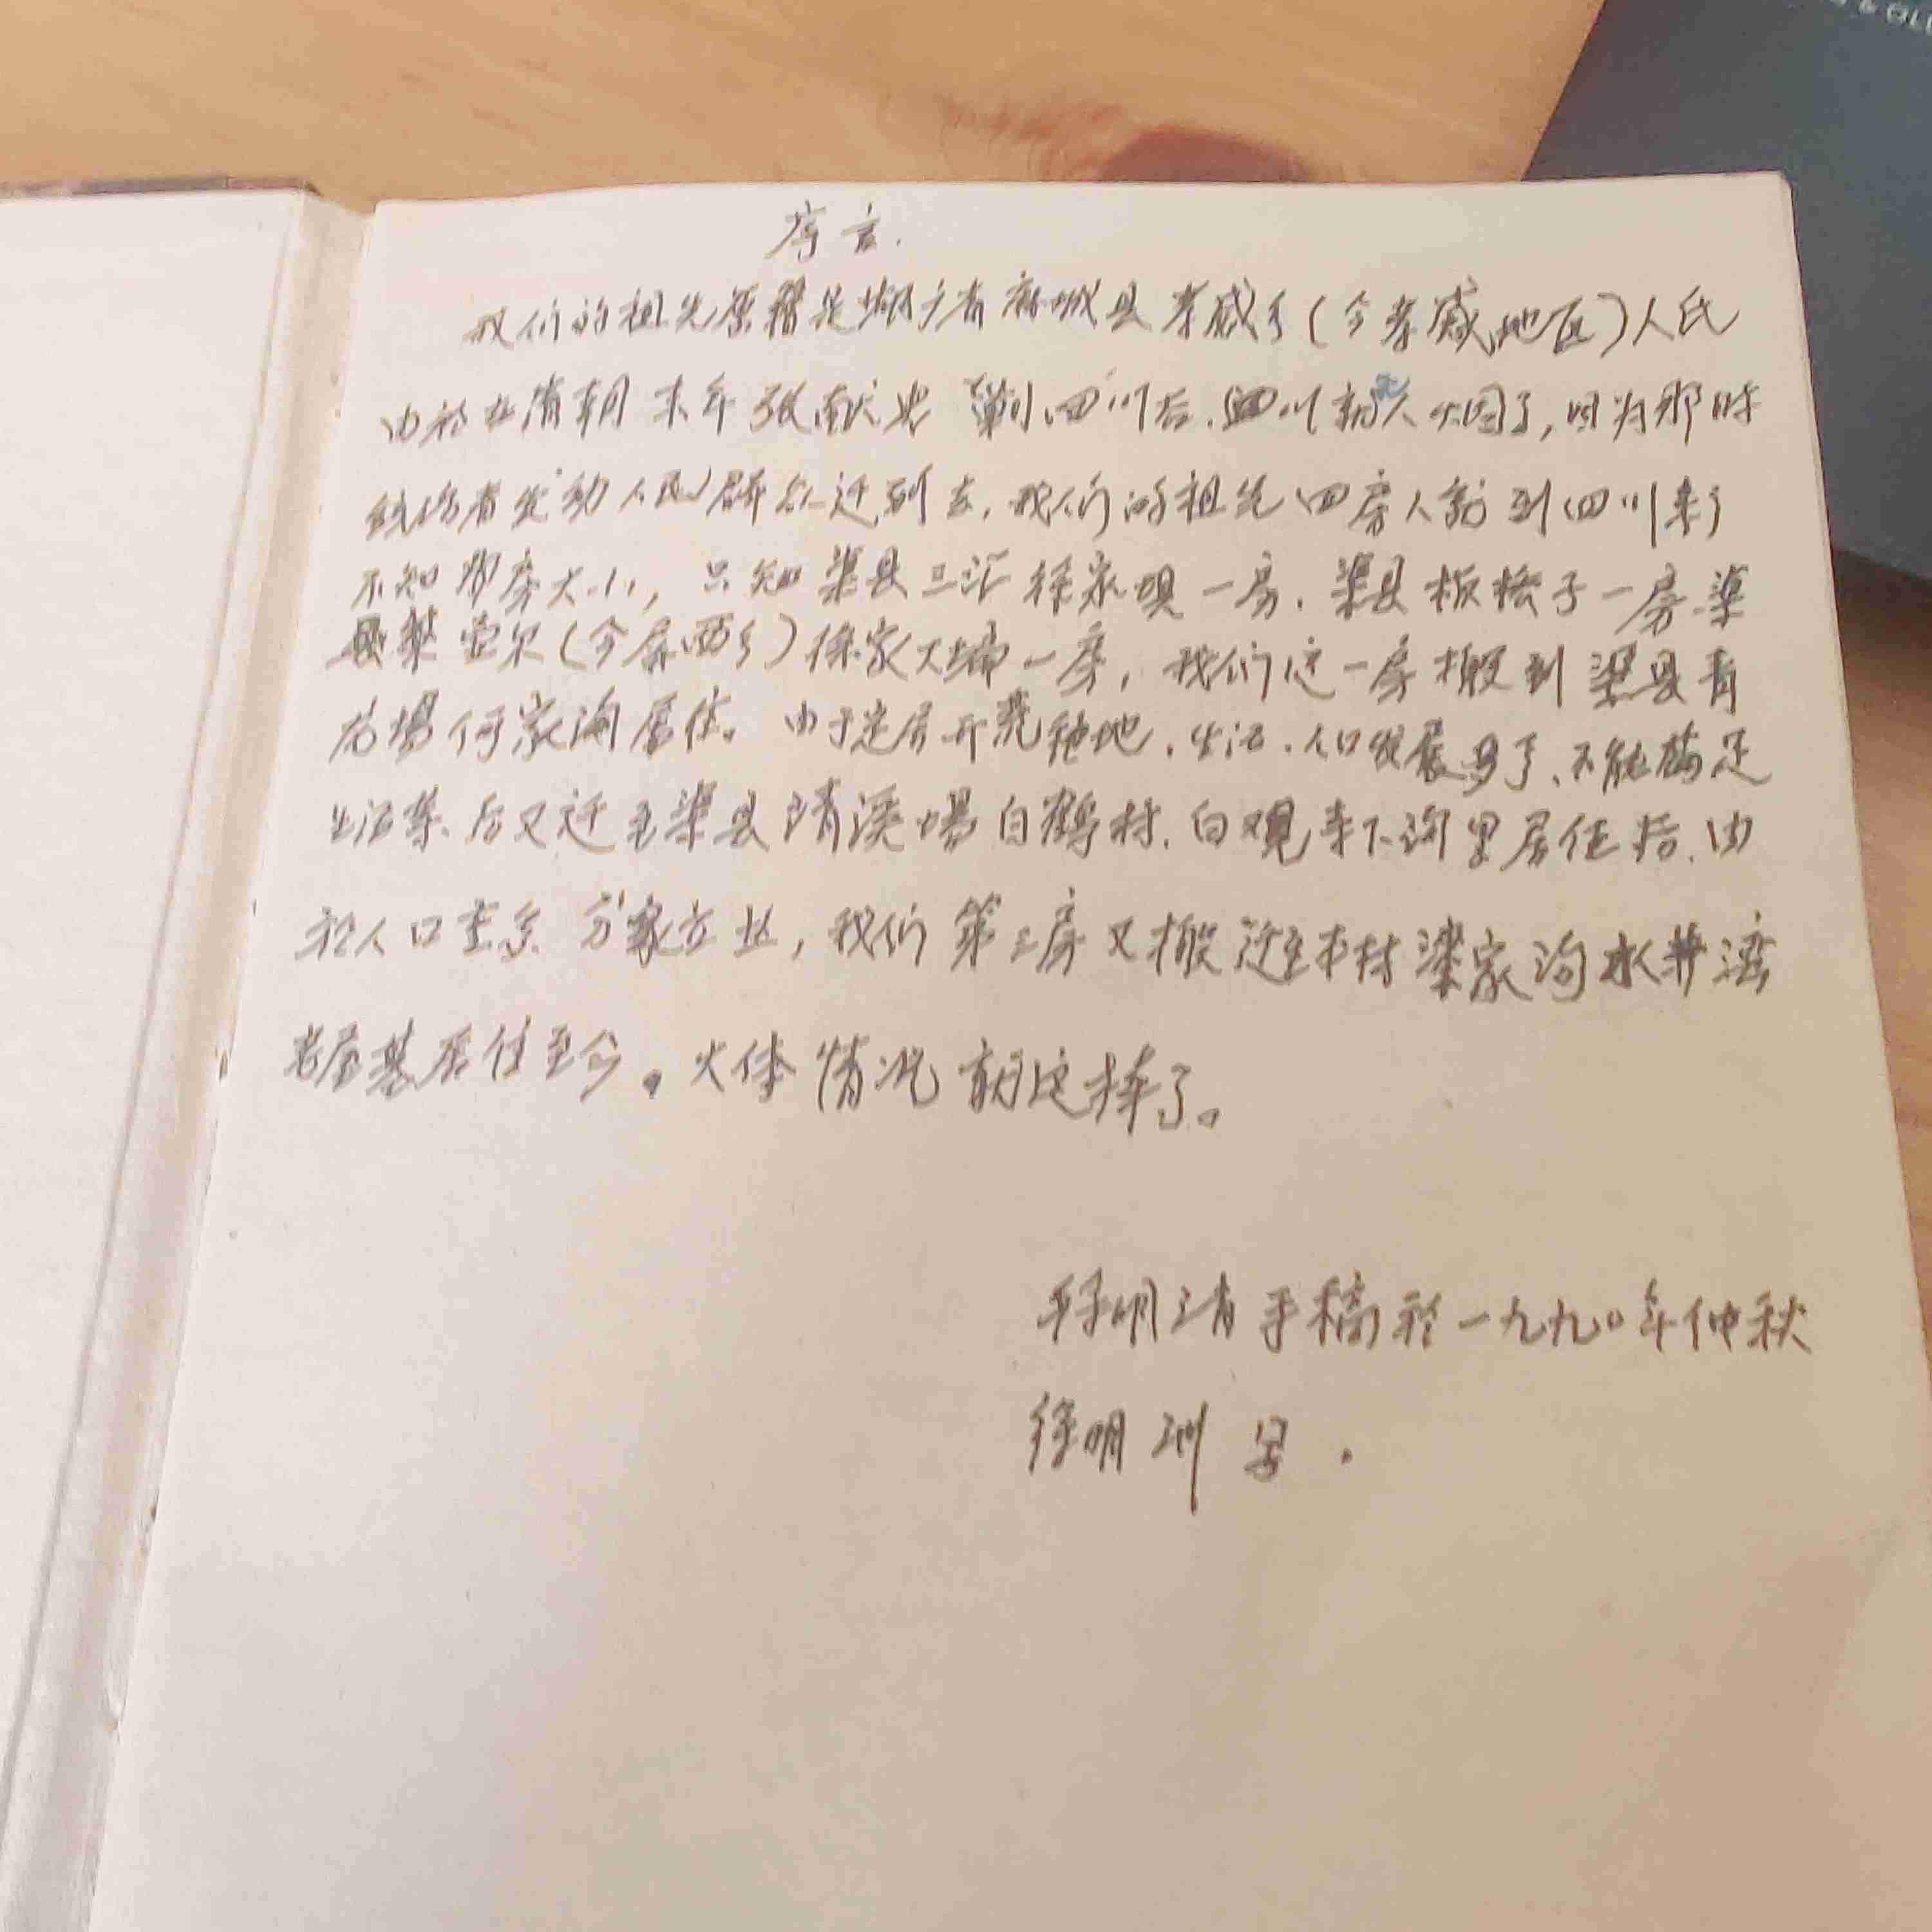 序言.
我们的祖先原籍是湖广省麻城县孝感乡(今孝感地区)人氏
由于在清朝末年张献忠剿四川后.四川就无人烟了,因为那时
统治者发动人民群众迁到去,我们的祖先四房人就到四川来了
不知那房大小,只知渠县三汇徐家坝一房.渠县板桥子一房.渠
县(今屏西乡)徐家大塆一房,我们这一房搬到渠县青
龙場何家沟居住。由于定居开荒种地.生活.人口发展多了、不能满足
生活.后又迁至渠县清溪場白鹤村.白观寺下沟里居住后.由
於人口重多.分家立业,我们第三房又搬迁至本村梁家沟水井湾
老屋基居住至今。大体情况就这样了。
徐明清手稿於一九九0年仲秋
徐明洲写.